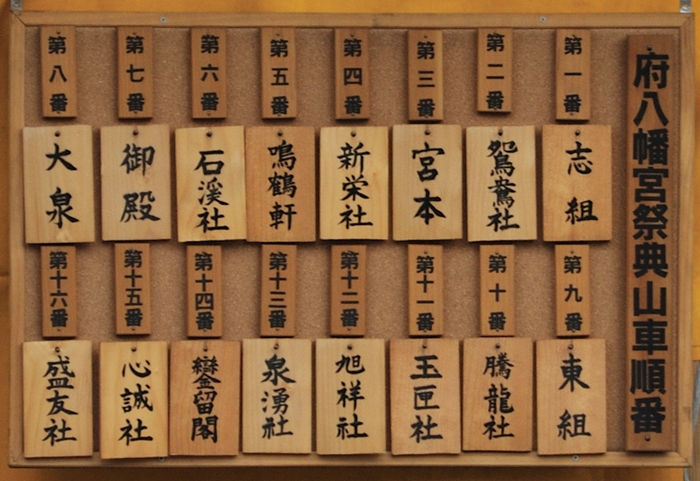 府八幡宮祭典山車順番
第一番
志組
第二番
鴛鴦社
第三番
宮本
第四番
新栄社
第五番
鳴鶴軒
第六番
石溪社
第七番
御殿
第八番
大泉
第九番
東組
第十番
騰龍社
第十一番
玉匣社
第十二番
旭祥社
第十三番
泉湧社
第十四番
鑾留閣
第十五番
心誠社
第十六番
盛友社